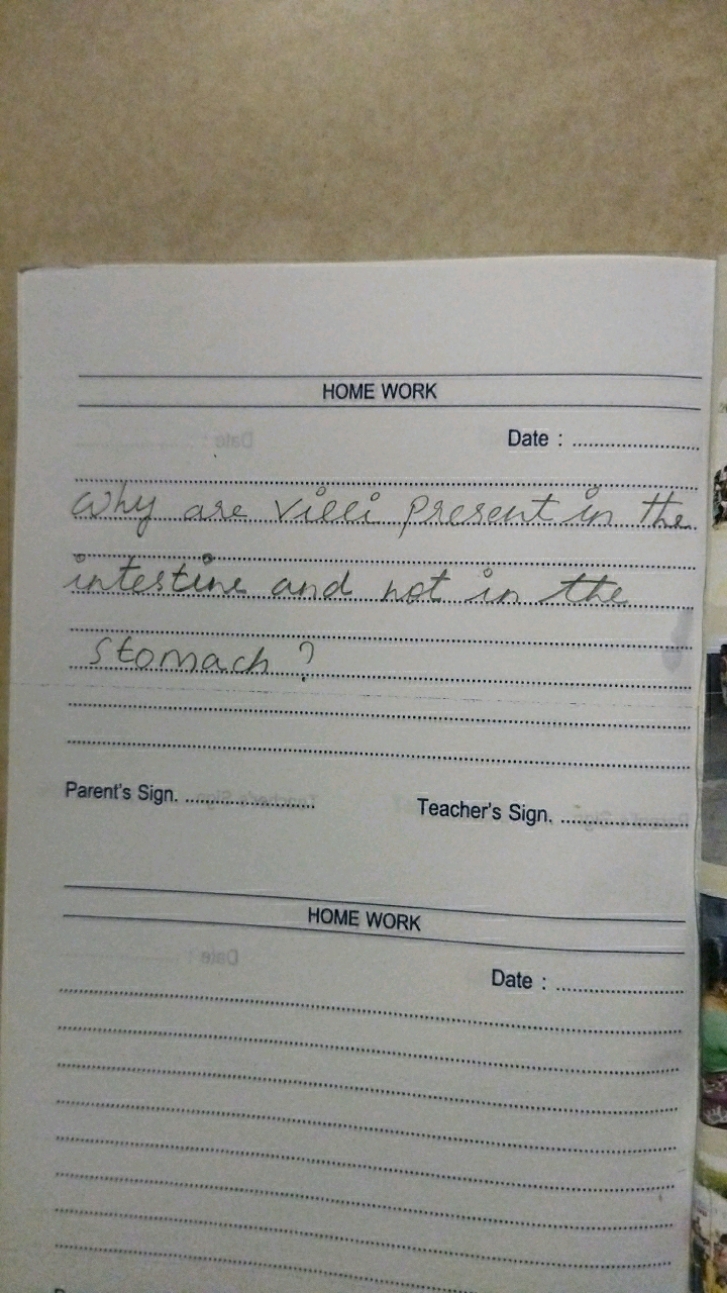 HOME WORK
Date :
Why are villi present in the
intestine and not in the
stomach?
Parent's Sign.
Teacher's Sign.
HOME WORK
Date :